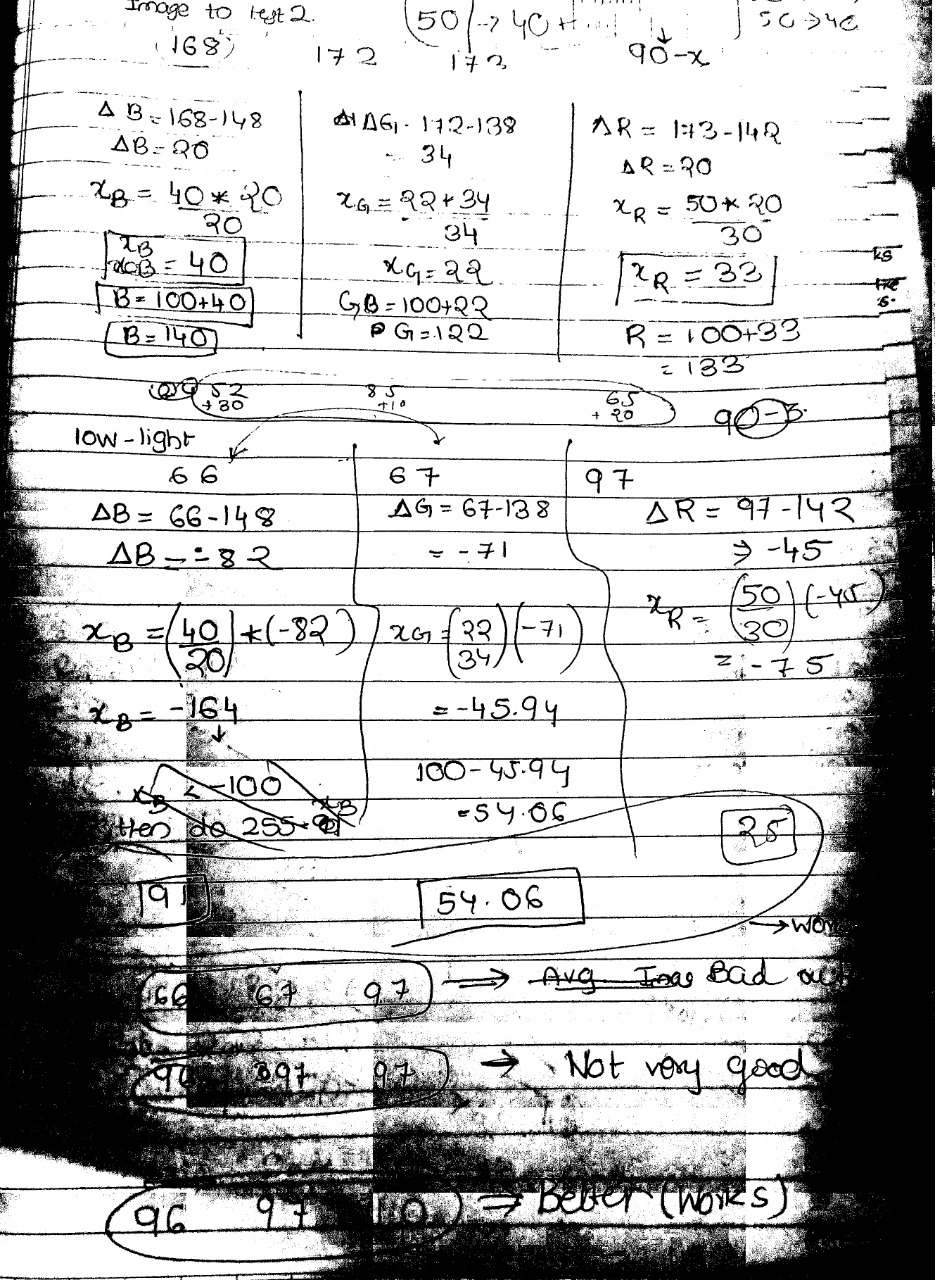 Image to test 2.
50 → 40
50 → 40
(168) 172 173 90-x
ΔB = 168-148
ΔB = 20
xB = 40 * 20
20
xB
xB = 40
B = 100+40
B = 140
ΔG = 172-138
= 34
xG = 22 * 34
34
xG = 22
GB = 100+22
G = 122
ΔR = 173-142
ΔR = 20
xR = 50 * 20
30
xR = 33
R = 100+33
= 133
52 85 65
+30 +10 +20
low-light
66
ΔB = 66-148
ΔB = -82
xB = (40/20) * (-82)
xB = -164
↓
xB < -100
then do 255-xB
67
ΔG = 67-138
= -71
xG = (22/34)(-71)
= -45.94
100-45.94
= 54.06
97
ΔR = 97-142
⇒ -45
xR = (50/30)(-45)
= -75
25
191 54.06
66 67 97 ⇒ Avg Bad
97 97 → Not very good
96 97 110 ⇒ Better (works)